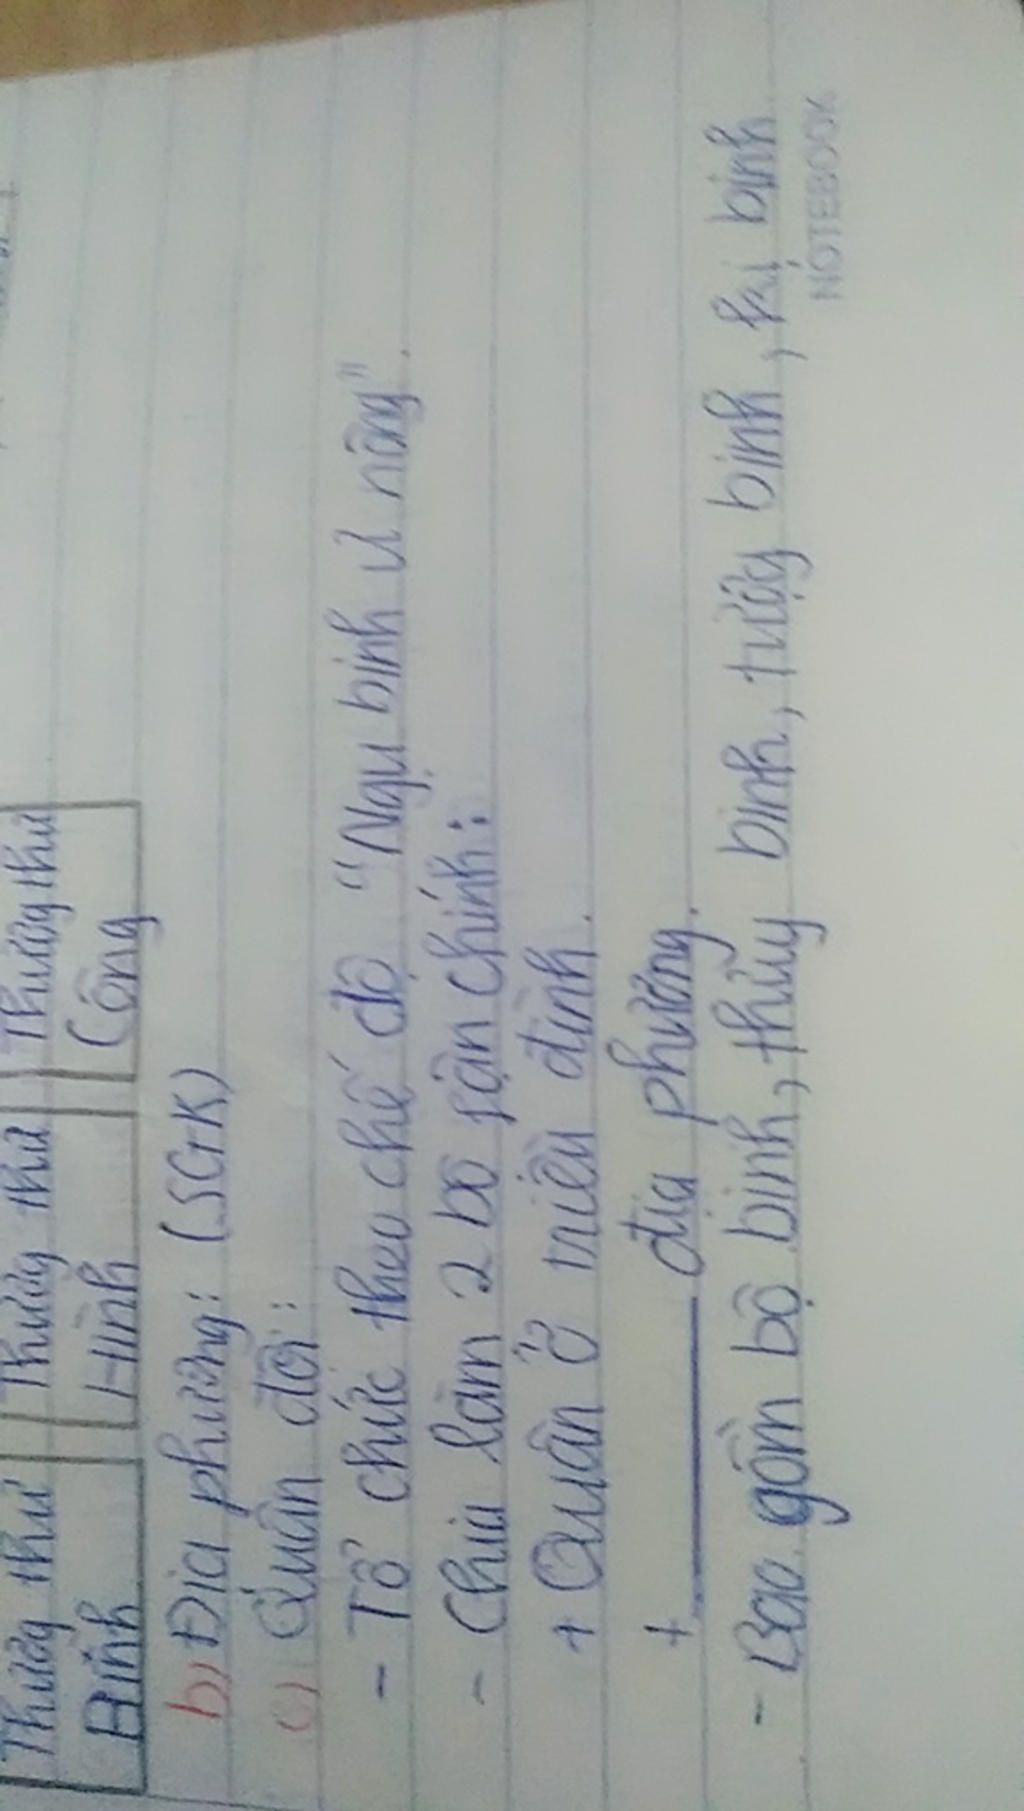 Thượg thư Thượg thư Thượg thư
Binh Hình Công
b) Địa phương: (SGK)
c) Quân đội:
- Tổ chức theo chế độ "Ngụ binh ư nông".
- Chia làm 2 bộ phận chính:
+ Quân ở triều đình.
+ ____ địa phương.
- Bao gồm bộ binh, thủy binh, tượg binh, kị binh
NOTEBOOK